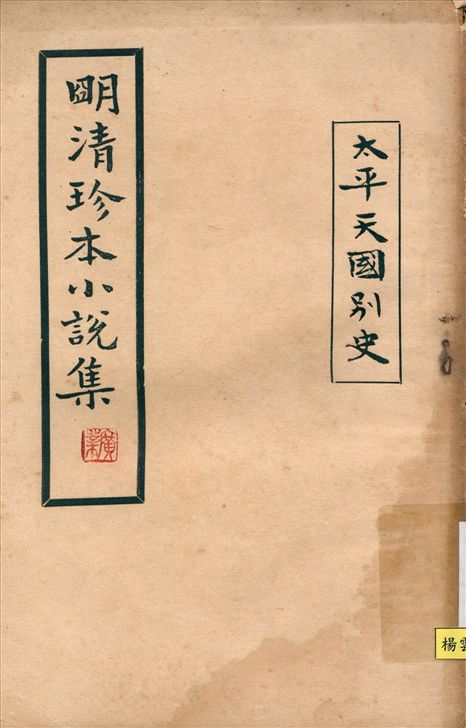 太平天國別史
明清珍本小說集
廣業
楊雲